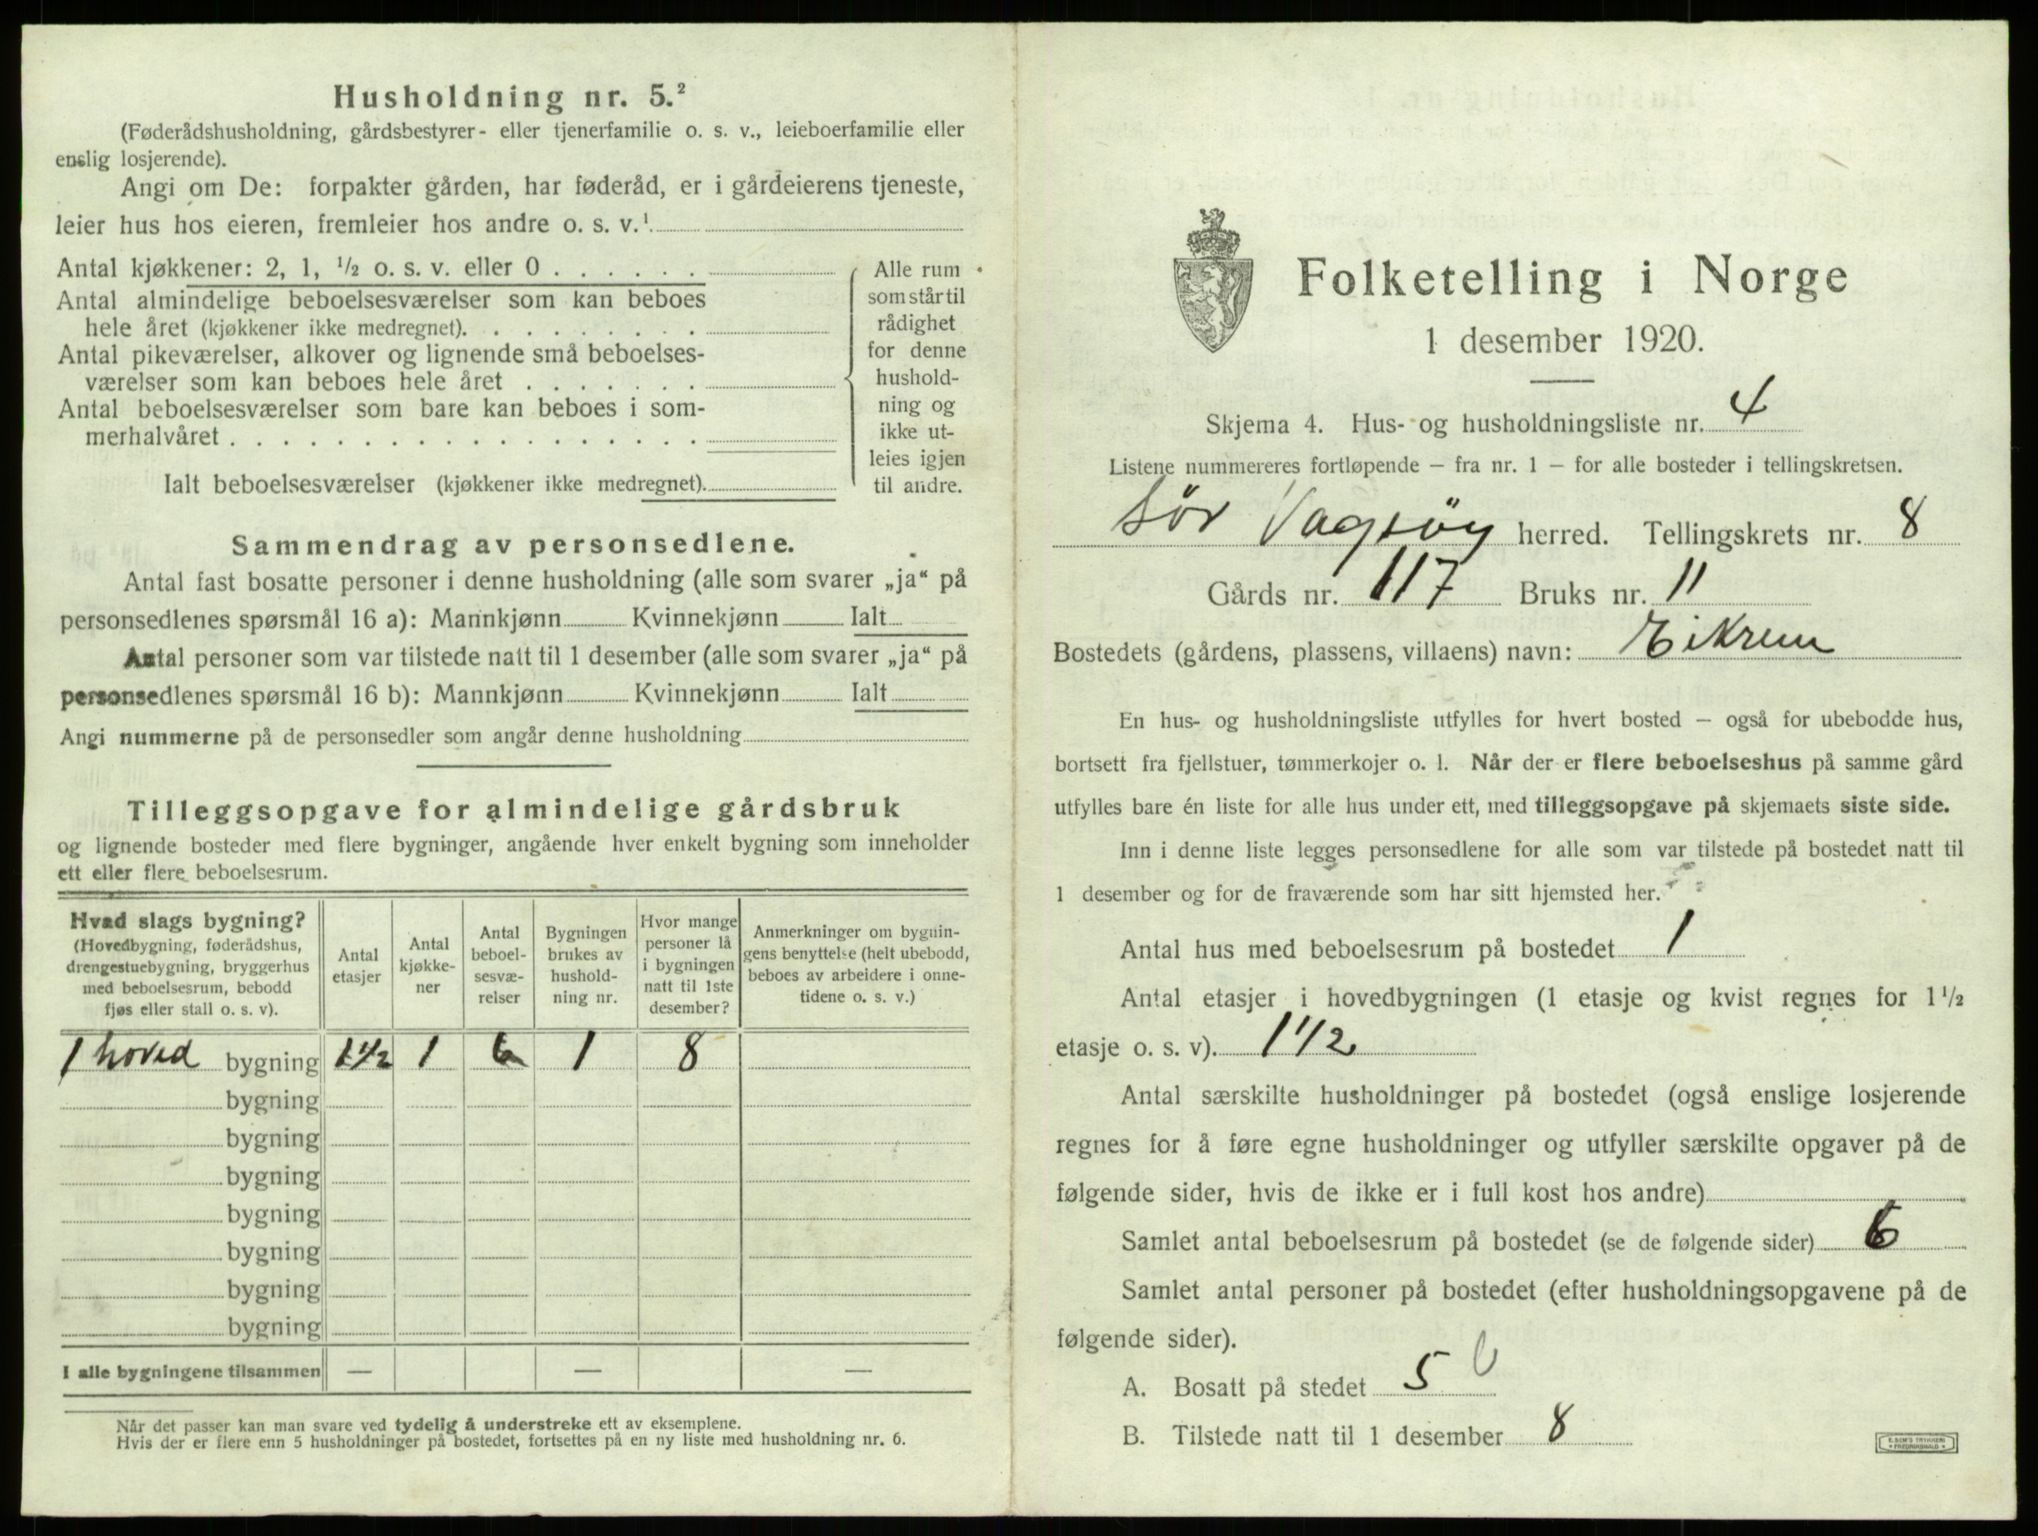 Husholdning nr. 5.²
(Føderådshusholdning, gårdsbestyrer- eller tjenerfamilie o. s. v., leieboerfamilie eller
enslig losjerende).
Angi om De: forpakter gården, har føderåd, er i gårdeierens tjeneste,
leier hus hos eieren, fremleier hos andre o. s. v.¹
Antal kjøkkener: 2, 1, ½ o. s. v. eller 0 . . . . . .
Antal almindelige beboelsesværelser som kan beboes
hele året (kjøkkener ikke medregnet). . . . . . . . .
Antal pikeværelser, alkover og lignende små beboelses-
værelser som kan beboes hele året . . . . . . .
Antal beboelsesværelser som bare kan beboes i som-
merhalvåret . . . . . . . . . . . . . . . . . .
Ialt beboelsesværelser (kjøkkener ikke medregnet).
Alle rum
som står til
rådighet
for denne
hushold-
ning og
ikke ut-
leies igjen
til andre.
Sammendrag av personsedlene.
Antal fast bosatte personer i denne husholdning (alle som svarer „ja“ på
personsedlenes spørsmål 16 a): Mannkjønn Kvinnekjønn Ialt
Antal personer som var tilstede natt til 1 desember (alle som svarer „ja“ på
personsedlenes spørsmål 16 b): Mannkjønn Kvinnekjønn Ialt
Angi nummerne på de personsedler som angår denne husholdning
Tilleggsopgave for almindelige gårdsbruk
og lignende bosteder med flere bygninger, angående hver enkelt bygning som inneholder
ett eller flere beboelsesrum.
Hvad slags bygning?
(Hovedbygning, føderådshus,
drengestuebygning, bryggerhus
med beboelsesrum, bebodd
fjøs eller stall o. s. v).
Antal
etasjer
Antal
kjøkke-
ner
Antal
beboel-
sesvæ-
relser
Bygningen
brukes av
hushold-
ning nr.
Hvor mange
personer lå
i bygningen
natt til 1ste
desember?
Anmerkninger om bygnin-
gens benyttelse (helt ubebodd,
beboes av arbeidere i onne-
tidene o. s. v.)
1 hoved bygning 1 1/2 1 6 1 8
bygning
bygning
bygning
bygning
bygning
bygning
bygning
I alle bygningene tilsammen — — —
Når det passer kan man svare ved tydelig å understreke ett av eksemplene.
Hvis der er flere enn 5 husholdninger på bostedet, fortsettes på en ny liste med husholdning nr. 6.
Folketelling i Norge
1 desember 1920.
Skjema 4. Hus- og husholdningsliste nr. 4
Listene nummereres fortløpende – fra nr. 1 – for alle bosteder i tellingskretsen.
Sör Vagsöy herred. Tellingskrets nr. 8
Gårds nr. 117 Bruks nr. 11
Bostedets (gårdens, plassens, villaens) navn: Eikrem
En hus- og husholdningsliste utfylles for hvert bosted – også for ubebodde hus,
bortsett fra fjellstuer, tømmerkojer o. l. Når der er flere beboelseshus på samme gård
utfylles bare én liste for alle hus under ett, med tilleggsopgave på skjemaets siste side.
Inn i denne liste legges personsedlene for alle som var tilstede på bostedet natt til
1 desember og for de fraværende som har sitt hjemsted her.
Antal hus med beboelsesrum på bostedet 1
Antal etasjer i hovedbygningen (1 etasje og kvist regnes for 1½
etasje o. s. v). 1 1/2
Antal særskilte husholdninger på bostedet (også enslige losjerende
regnes for å føre egne husholdninger og utfyller særskilte opgaver på de
følgende sider, hvis de ikke er i full kost hos andre)
Samlet antal beboelsesrum på bostedet (se de følgende sider) 6
Samlet antal personer på bostedet (efter husholdningsopgavene på de
følgende sider).
A. Bosatt på stedet 5
B. Tilstede natt til 1 desember 8
E. SEM'S TRYKKERI
FREDRIKSHALD